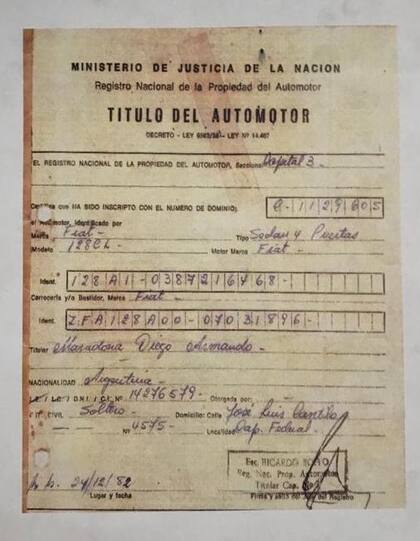 MINISTERIO DE JUSTICIA DE LA NACION
Registro Nacional de la Propiedad del Automotor
TITULO DEL AUTOMOTOR
DECRETO - LEY 6582/58 - LEY Nº 14.467
EL REGISTRO NACIONAL DE LA PROPIEDAD DEL AUTOMOTOR, Seccional Capital 3 -
Certifica que HA SIDO INSCRIPTO CON EL NUMERO DE DOMINIO: C-1129605
el automotor, identificado por
Marca Fiat - Tipo Sedan 4 Puertas
Modelo 128CL - Motor Marca Fiat -
Ident. 128A1-0387216468-
Carrocería y/o Bastidor, Marca Fiat -
Ident. ZFA128A00-07031896-
Titular Maradona Diego Armando -
NACIONALIDAD Argentina -
L.E./L.C./D.N.I./C.I. Nº 14276579 - Otorgada por
EST. CIVIL Soltero - Domicilio: Calle José Luis Cantilo
Nº 4575 - Localidad Cap. Federal -
Esc. RICARDO
Reg. Nac. Prop. Automotor
Titular Cap. Nº 3
24/12/82
Lugar y fecha Firma y sello del Jefe del Registro